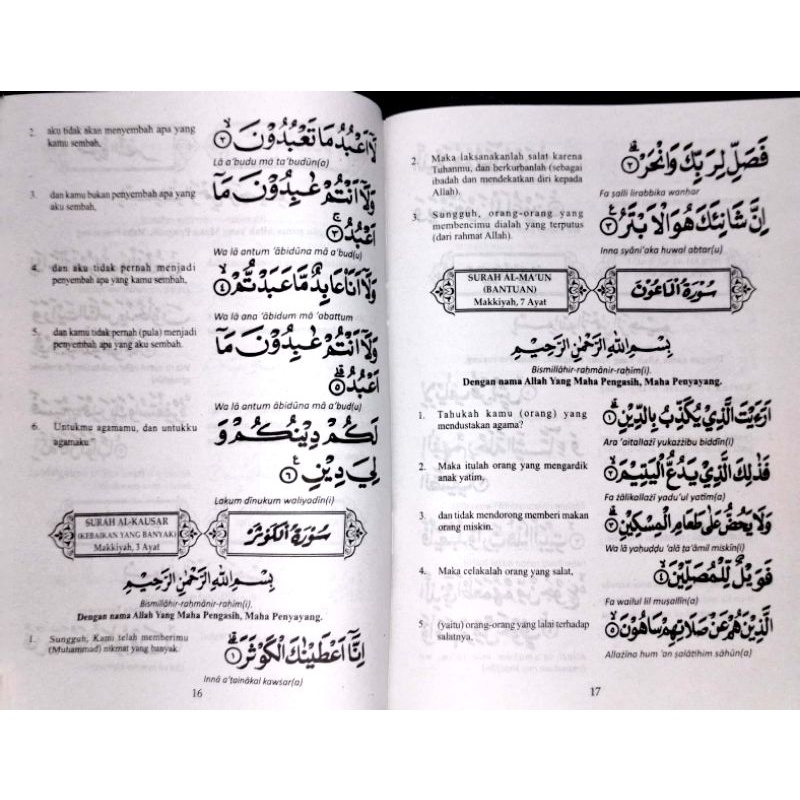 2. aku tidak akan menyembah apa yang
kamu sembah,
لَآ اَعْبُدُ مَا تَعْبُدُوْنَۙ ۝٢
Lā a'budu mā ta'budūn(a)
3. dan kamu bukan penyembah apa yang
aku sembah,
وَلَآ اَنْتُمْ عٰبِدُوْنَ مَآ
اَعْبُدُۚ ۝٣
Wa lā antum 'ābidūna mā a'bud(u)
4. dan aku tidak pernah menjadi
penyembah apa yang kamu sembah,
وَلَآ اَنَا۠ عَابِدٌ مَّا عَبَدْتُّمْۙ ۝٤
Wa lā ana 'ābidum mā 'abattum
5. dan kamu tidak pernah (pula) menjadi
penyembah apa yang aku sembah.
وَلَآ اَنْتُمْ عٰبِدُوْنَ مَآ
اَعْبُدُۗ ۝٥
Wa lā antum ābidūna mā a'bud(u)
6. Untukmu agamamu, dan untukku
agamaku."
لَكُمْ دِيْنُكُمْ وَ
لِيَ دِيْنِ ۝٦
Lakum dīnukum waliyadīn(i)
SURAH AL-KAUSAR
(KEBAIKAN YANG BANYAK)
Makkiyah, 3 Ayat
سُوْرَةُ الْكَوْثَرْ
بِسْمِ اللّٰهِ الرَّحْمٰنِ الرَّحِيْمِ
Bismillāhir-raḥmānir-raḥīm(i).
Dengan nama Allah Yang Maha Pengasih, Maha Penyayang.
1. Sungguh, Kami telah memberimu
(Muhammad) nikmat yang banyak.
اِنَّآ اَعْطَيْنٰكَ الْكَوْثَرَۗ ۝١
Innā a'ṭainākal kawsar(a)
16
2. Maka laksanakanlah salat karena
Tuhanmu, dan berkurbanlah (sebagai
ibadah dan mendekatkan diri kepada
Allah).
فَصَلِّ لِرَبِّكَ وَانْحَرْۗ ۝٢
Fa ṣalli lirabbika wanhar
3. Sungguh, orang-orang yang
membencimu dialah yang terputus
(dari rahmat Allah).
اِنَّ شَانِئَكَ هُوَ الْاَبْتَرُ ۝٣
Inna syāni'aka huwal abtar(u)
SURAH AL-MA'UN
(BANTUAN)
Makkiyah, 7 Ayat
سُوْرَةُ الْمَاعُوْنَ
بِسْمِ اللّٰهِ الرَّحْمٰنِ الرَّحِيْمِ
Bismillāhir-raḥmānir-raḥīm(i).
Dengan nama Allah Yang Maha Pengasih, Maha Penyayang.
1. Tahukah kamu (orang) yang
mendustakan agama?
اَرَءَيْتَ الَّذِيْ يُكَذِّبُ بِالدِّيْنِۗ ۝١
Ara 'aitallażī yukażżibu biddīn(i)
2. Maka itulah orang yang mengardik
anak yatim,
فَذٰلِكَ الَّذِيْ يَدُعُّ الْيَتِيْمَۙ ۝٢
Fa żālikallażī yadu'ul yatīm(a)
3. dan tidak mendorong memberi makan
orang miskin.
وَلَا يَحُضُّ عَلٰى طَعَامِ الْمِسْكِيْنِۗ ۝٣
Wa lā yaḥuddu 'alā ṭa'āmil miskīn(i)
4. Maka celakalah orang yang salat,
فَوَيْلٌ لِّلْمُصَلِّيْنَۙ ۝٤
Fa wailul lil muṣallīn(a)
5. (yaitu) orang-orang yang lalai terhadap
salatnya,
الَّذِيْنَ هُمْ عَنْ صَلَاتِهِمْ سَاهُوْنَۙ ۝٥
Allażīna hum 'an ṣalātihim sāhūn(a)
17